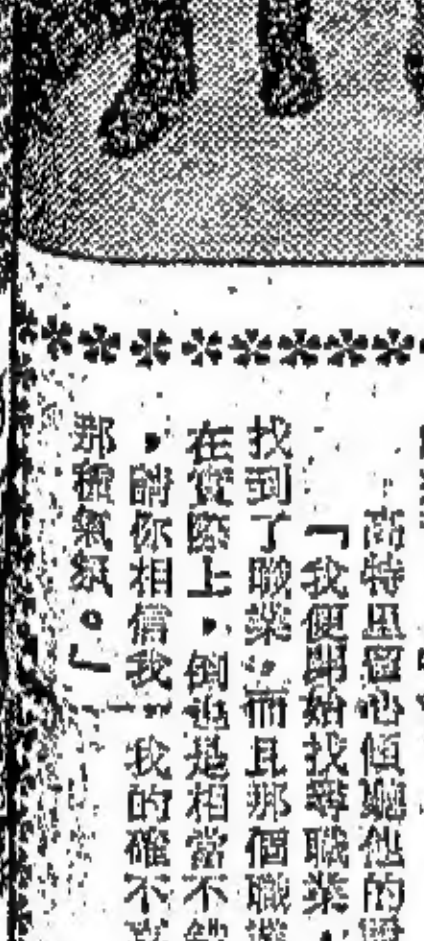 高特里留心傾聽他的
「我便開始找尋職業，
找到了職業，而且那個職業
在實際上，倒也是相當不錯
，請你相信我——我的確不
那種氣氛。」